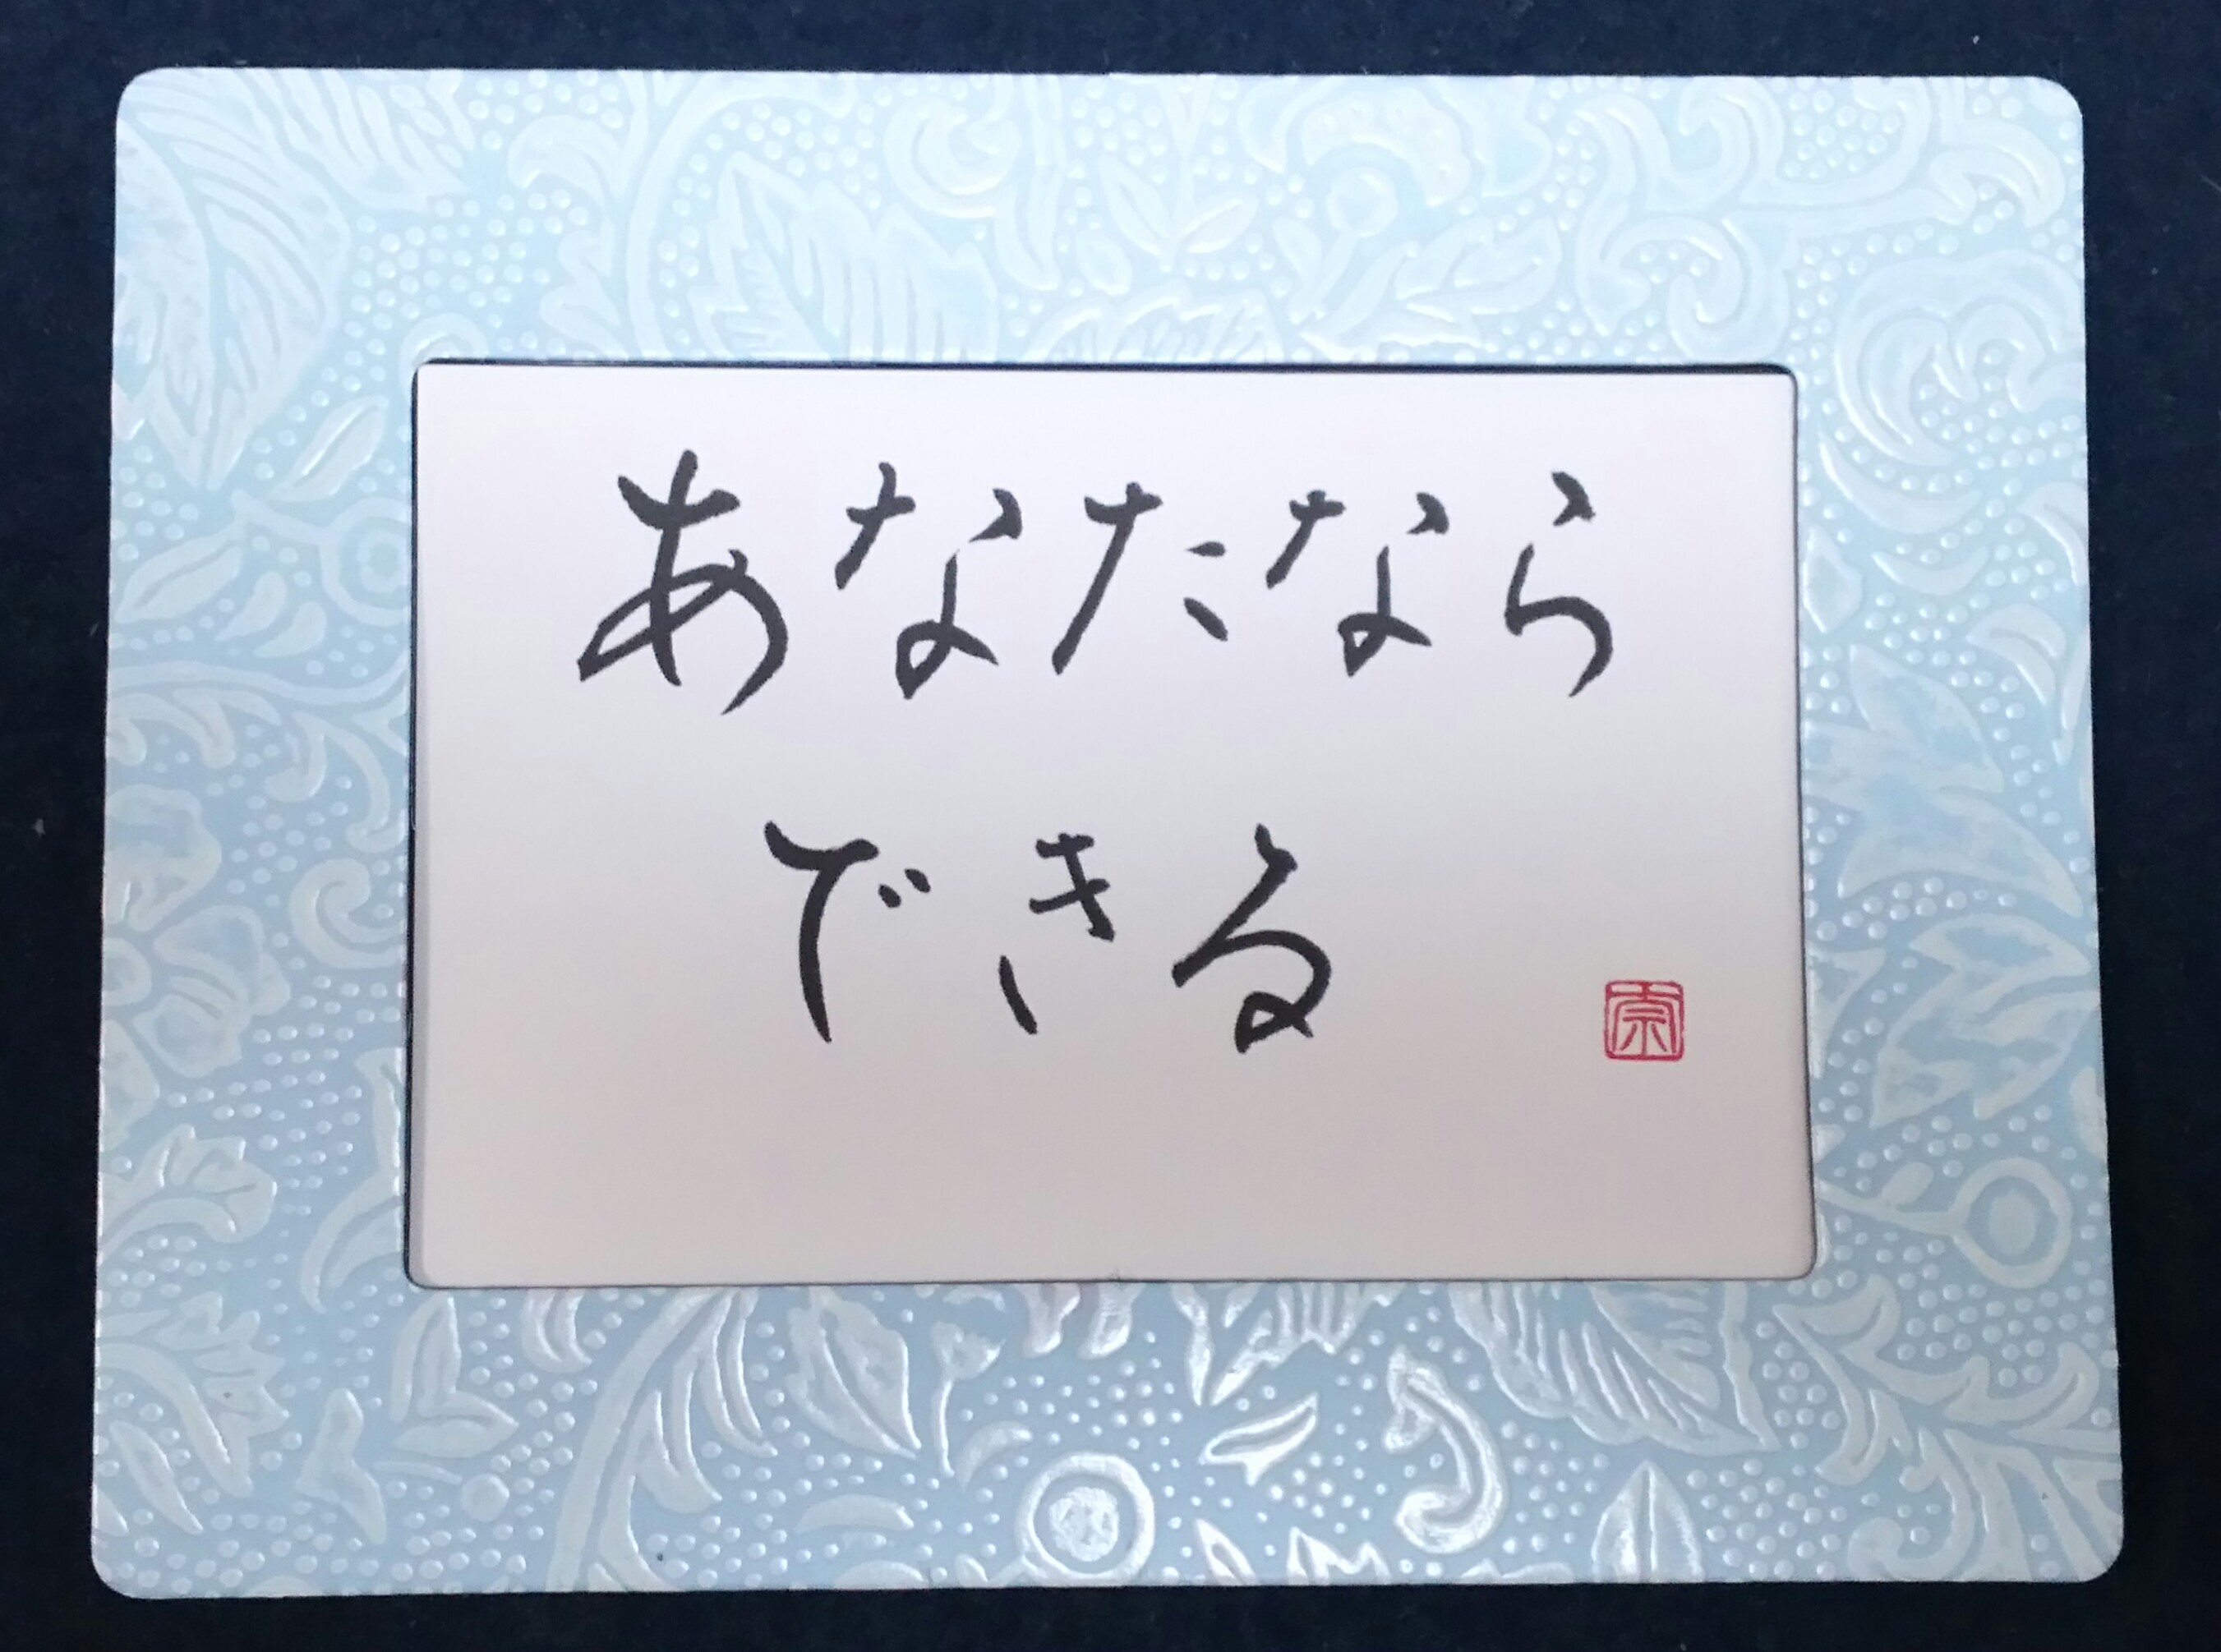 あなたなら
できる